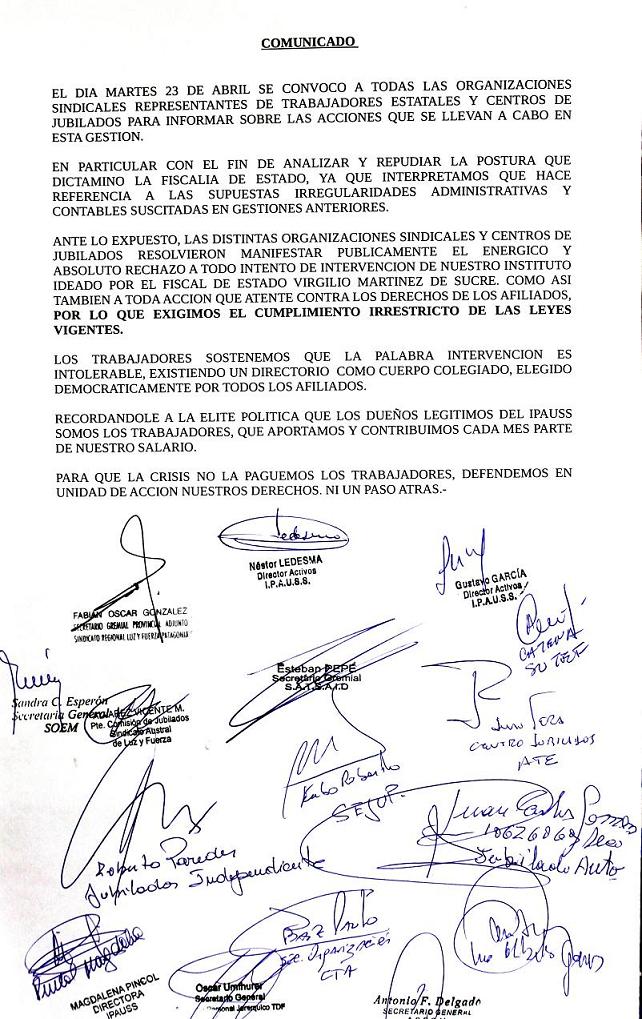 COMUNICADO
EL DIA MARTES 23 DE ABRIL SE CONVOCO A TODAS LAS ORGANIZACIONES
SINDICALES REPRESENTANTES DE TRABAJADORES ESTATALES Y CENTROS DE
JUBILADOS PARA INFORMAR SOBRE LAS ACCIONES QUE SE LLEVAN A CABO EN
ESTA GESTION.
EN PARTICULAR CON EL FIN DE ANALIZAR Y REPUDIAR LA POSTURA QUE
DICTAMINO LA FISCALIA DE ESTADO, YA QUE INTERPRETAMOS QUE HACE
REFERENCIA A LAS SUPUESTAS IRREGULARIDADES ADMINISTRATIVAS Y
CONTABLES SUSCITADAS EN GESTIONES ANTERIORES.
ANTE LO EXPUESTO, LAS DISTINTAS ORGANIZACIONES SINDICALES Y CENTROS DE
JUBILADOS RESOLVIERON MANIFESTAR PUBLICAMENTE EL ENERGICO Y
ABSOLUTO RECHAZO A TODO INTENTO DE INTERVENCION DE NUESTRO INSTITUTO
IDEADO POR EL FISCAL DE ESTADO VIRGILIO MARTINEZ DE SUCRE. COMO ASI
TAMBIEN A TODA ACCION QUE ATENTE CONTRA LOS DERECHOS DE LOS AFILIADOS,
POR LO QUE EXIGIMOS EL CUMPLIMIENTO IRRESTRICTO DE LAS LEYES
VIGENTES.
LOS TRABAJADORES SOSTENEMOS QUE LA PALABRA INTERVENCION ES
INTOLERABLE, EXISTIENDO UN DIRECTORIO COMO CUERPO COLEGIADO, ELEGIDO
DEMOCRATICAMENTE POR TODOS LOS AFILIADOS.
RECORDANDOLE A LA ELITE POLITICA QUE LOS DUEÑOS LEGITIMOS DEL IPAUSS
SOMOS LOS TRABAJADORES, QUE APORTAMOS Y CONTRIBUIMOS CADA MES PARTE
DE NUESTRO SALARIO.
PARA QUE LA CRISIS NO LA PAGUEMOS LOS TRABAJADORES, DEFENDEMOS EN
UNIDAD DE ACCION NUESTROS DERECHOS. NI UN PASO ATRAS.-
Ledesma
Néstor LEDESMA
Director Activos
I.P.A.U.S.S.
Gustavo GARCÍA
Director Activos
I.P.A.U.S.S.
FABIAN OSCAR GONZALEZ
SECRETARIO GREMIAL PROVINCIAL ADJUNTO
SINDICATO REGIONAL LUZ Y FUERZA PATAGONIA
CATENA
SUTEF
Esteban PEPE
Secretario Gremial
S.A.T.S.A.I.D
Sandra C. Esperón
Secretaria General
SOEM
VICENTE M.
Pte. Comisión de Jubilados
Sindicato Austral
de Luz y Fuerza
CENTRO JUBILADOS
ATE
Roberto
SEJUP.
Juan Carlos
Jubilado Auto
Roberto Paredes
Jubilados Independiente
CTA
Pincol Magdalena
MAGDALENA PINCOL
DIRECTORA
IPAUSS
Oscar
Secretario General
Personal Jerarquico TDF
Antonio F. Delgado
SECRETARIO GENERAL